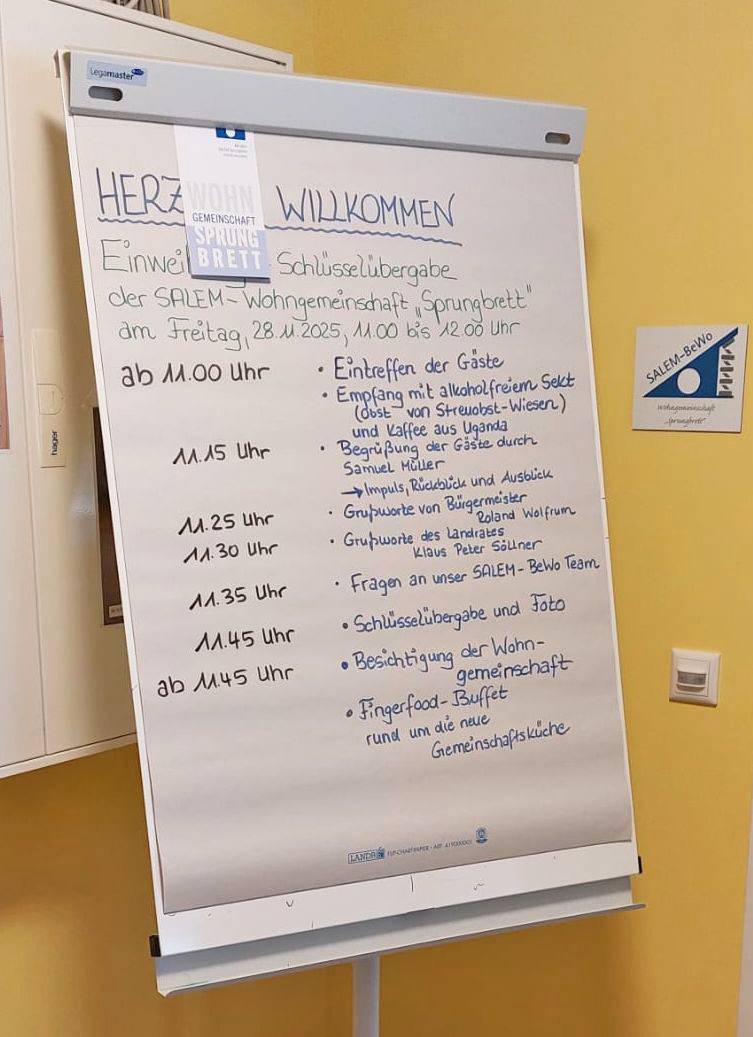 Legamaster
HERZ WILLKOMMEN
WOHN
GEMEINSCHAFT
SPRUNG
BRETT
Einwei Schlüsselübergabe
der SALEM-Wohngemeinschaft „Sprungbrett"
am Freitag, 28.11.2025, 11.00 bis 12.00 Uhr
ab 11.00 Uhr • Eintreffen der Gäste
• Empfang mit alkoholfreiem Sekt
(Obst von Streuobst-Wiesen)
und Kaffee aus Uganda
11.15 Uhr • Begrüßung der Gäste durch
Samuel Müller
→ Impuls, Rückblick und Ausblick
11.25 Uhr • Grußworte von Bürgermeister
Roland Wolfrum
11.30 Uhr • Grußworte des Landrates
Klaus Peter Söllner
11.35 Uhr • Fragen an unser SALEM-BeWo Team
11.45 Uhr • Schlüsselübergabe und Foto
ab 11.45 Uhr • Besichtigung der Wohn-
gemeinschaft
• Fingerfood-Buffet
rund um die neue
Gemeinschaftsküche
LANDRÉ FLIPCHARTPAPIER
hager
SALEM-BeWo
Wohngemeinschaft
„Sprungbrett"